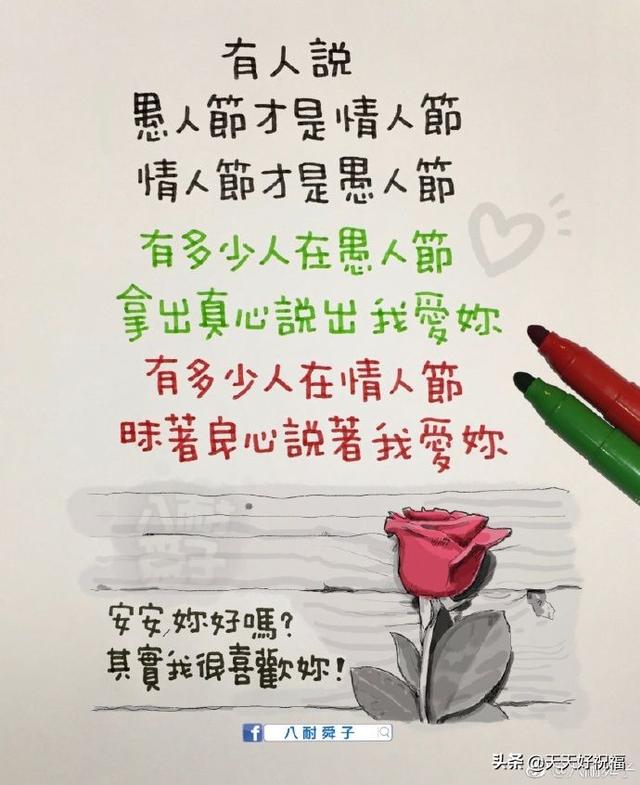 有人說
愚人節才是情人節
情人節才是愚人節
有多少人在愚人節
拿出真心說出我愛妳
有多少人在情人節
昧著良心說著我愛妳
八耐
舜子
安安,妳好嗎?
其實我很喜歡妳!
f 八耐舜子
头条 @天天好祝福